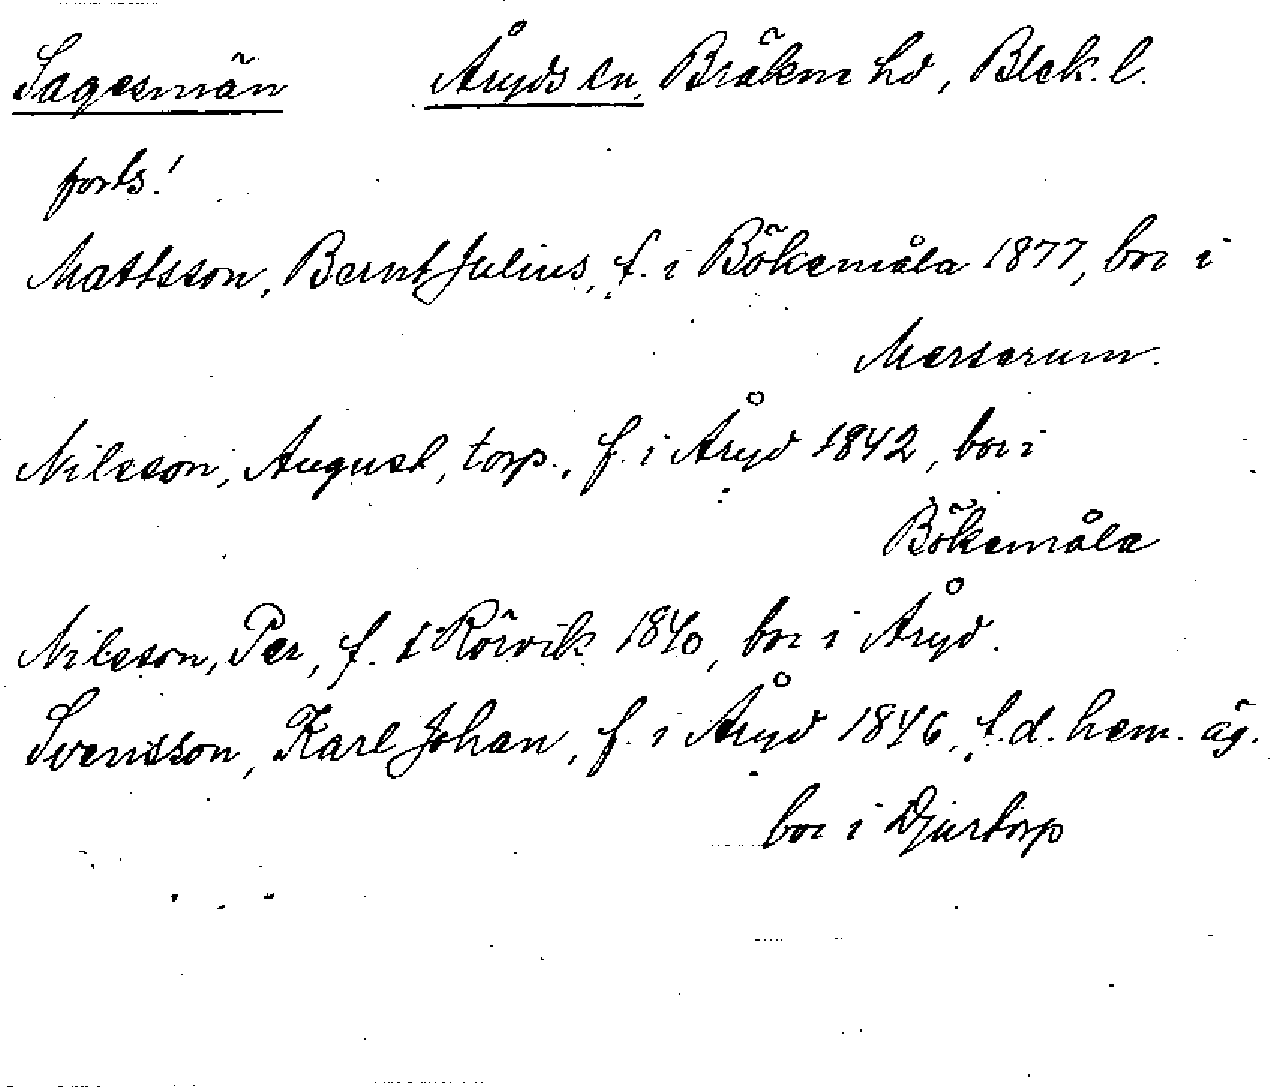 Sagesmän Åryds sn, Bräkne hd, Blek. l.
forts!
Mattsson, Bernt Julius, f. i Bökemåla 1877, bor i
Mörserum.
Nilsson, August, torp., f. i Åryd 1842, bor i
Bökemåla
Nilsson, Per, f. i Rörvik 1840, bor i Åryd.
Svensson, Karl Johan, f. i Åryd 1846, f.d. hem. äg.
bor i Djurtorp